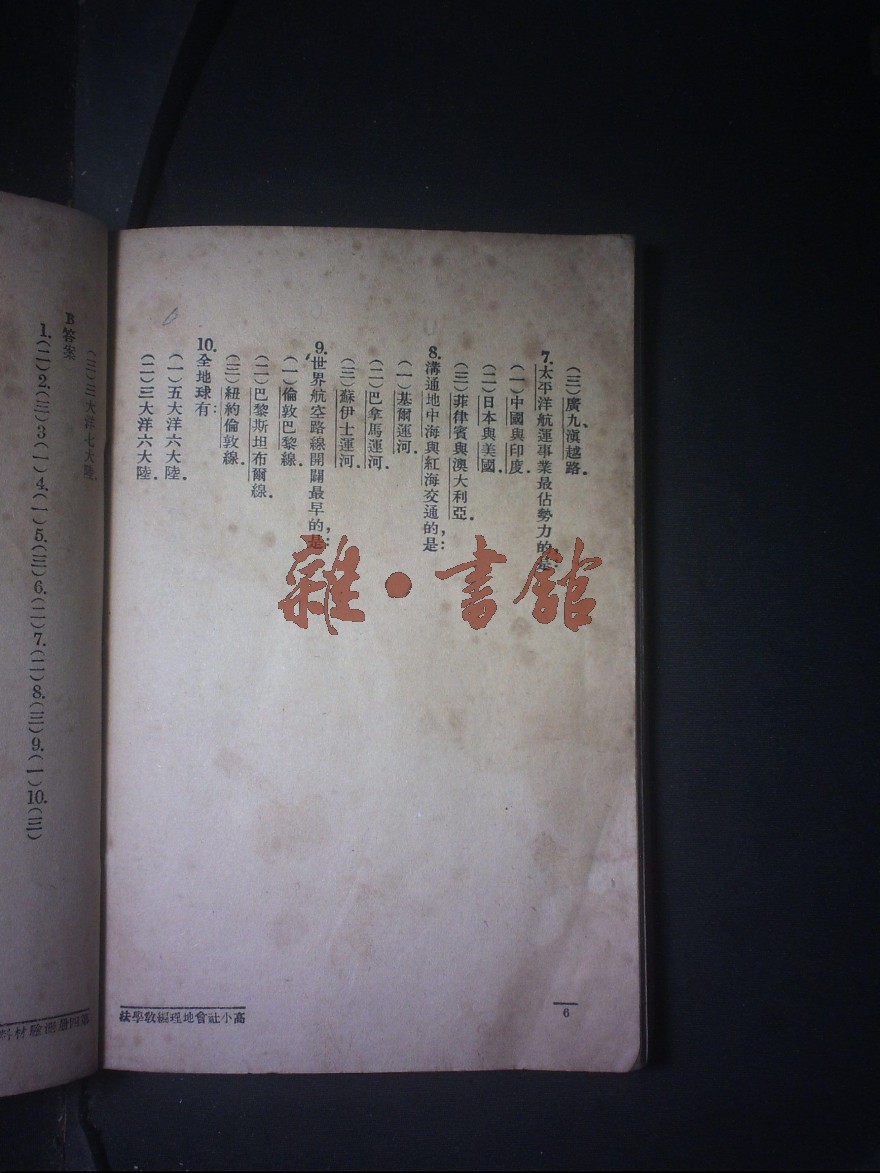 (三)廣九、滇越路.
7.太平洋航運事業最佔勢力的是,:
(一)中國與印度.
(二)日本與美國.
(三)菲律賓與澳大利亞.
8.溝通地中海與紅海交通的是:
(一)基爾運河.
(二)巴拿馬運河.
(三)蘇伊士運河.
9.世界航空路線開闢最早的是,:
(一)倫敦巴黎線.
(二)巴黎斯坦布爾線.
(三)紐約倫敦線.
10.全地球有:
(一)五大洋六大陸.
(二)三大洋六大陸.
6
高小社會地理編教學法
(三)三大洋七大陸.
B答案
1.(二)2.(三)3(一)4.(一)5.(三)6.(二)7.(二)8.(三)9.(一)10.(三)
第四冊測驗材料
雜·書館